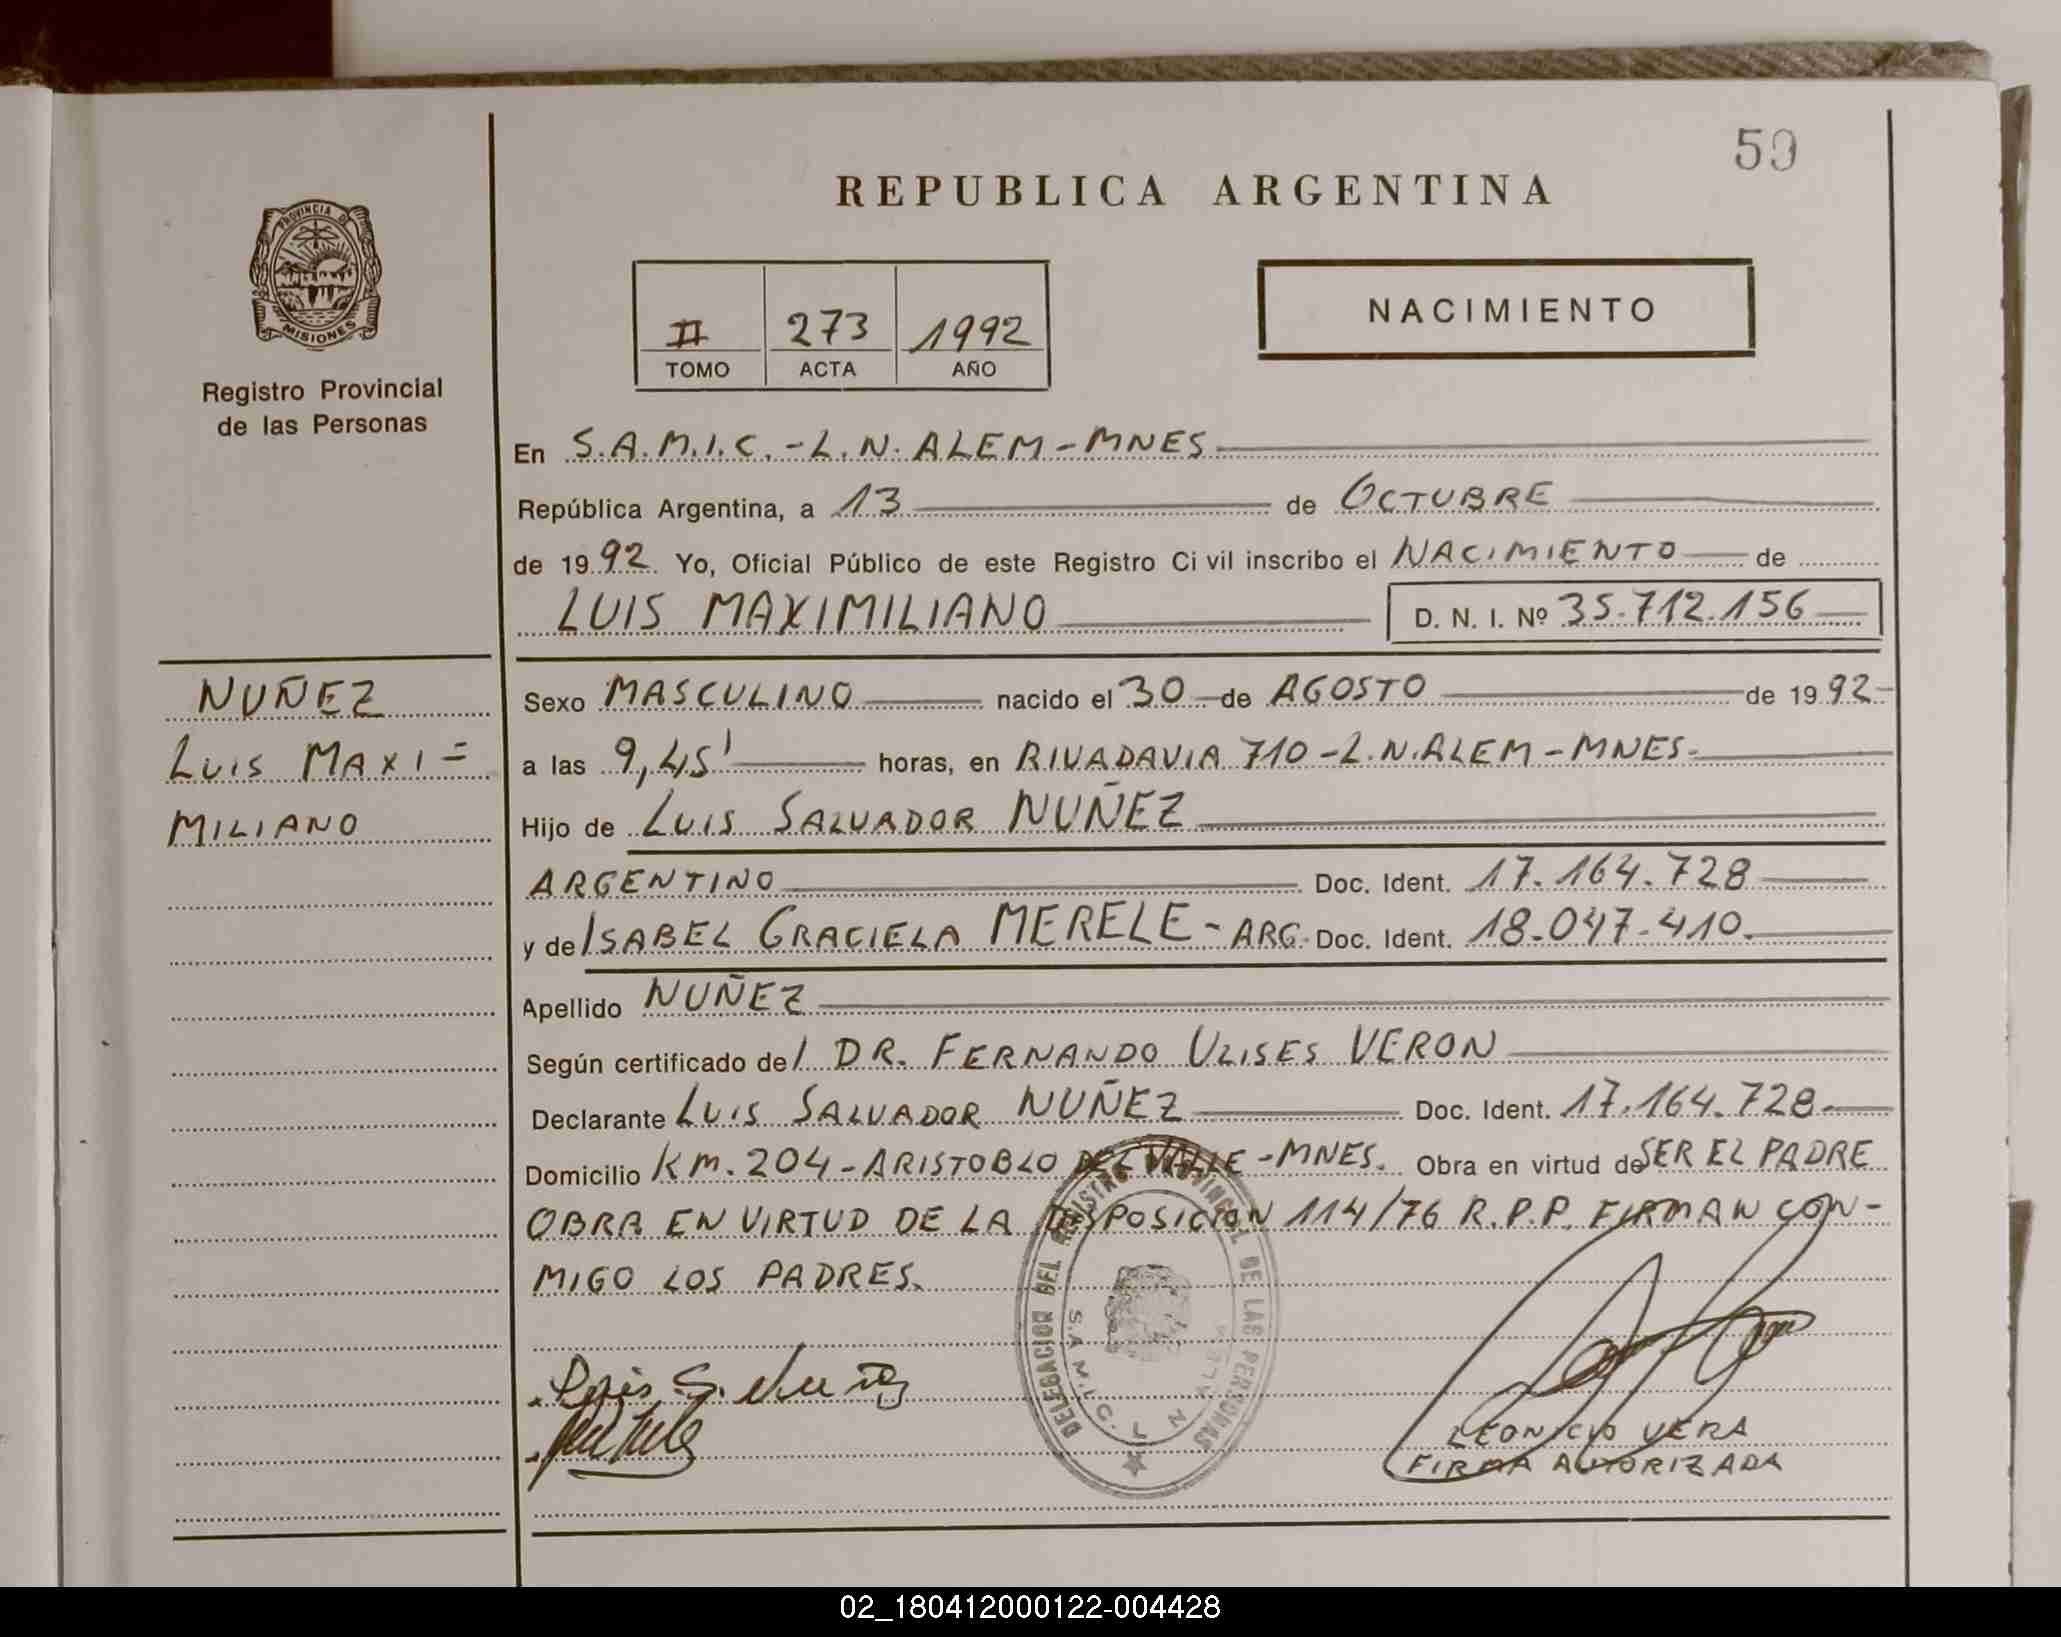 59
REPUBLICA ARGENTINA
PROVINCIA DE
MISIONES
Registro Provincial
de las Personas
II 273 1992
TOMO ACTA AÑO
NACIMIENTO
En S.A.M.I.C.-L.N. ALEM-MNES
República Argentina, a 13 de OCTUBRE
de 1992 Yo, Oficial Público de este Registro Civil inscribo el NACIMIENTO de
LUIS MAXIMILIANO D. N. I. Nº 35.712.156
NUÑEZ
LUIS MAXI=
MILIANO
Sexo MASCULINO nacido el 30 de AGOSTO de 1992-
a las 9,45' horas, en RIVADAVIA 710-L.N.ALEM-MNES-
Hijo de LUIS SALVADOR NUÑEZ
ARGENTINO Doc. Ident. 17.164.728
y de ISABEL GRACIELA MERELE-ARG. Doc. Ident. 18.047.410.
Apellido NUÑEZ
Según certificado del DR. FERNANDO ULISES VERON
Declarante LUIS SALVADOR NUÑEZ Doc. Ident. 17.164.728.
Domicilio KM. 204-ARISTOBLO DEL VALLE-MNES. Obra en virtud de SER EL PADRE
OBRA EN VIRTUD DE LA DISPOSICION 114/76 R.P.P. FIRMAN CON-
MIGO LOS PADRES.
DELEGACION DEL REGISTRO PROVINCIAL DE LAS PERSONAS
S.A.M.I.C. L N ALEM
Luis S. Nuñez
LEONICIO VERA
FIRMA AUTORIZADA
02_180412000122-004428